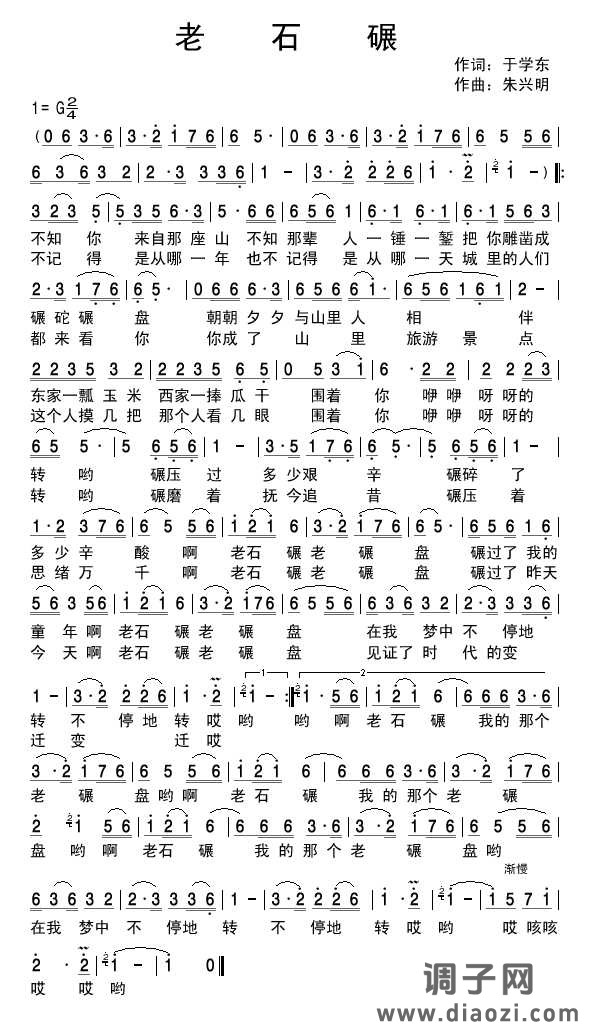 老 石 碾
作词：于学东
作曲：朱兴明
1= G 2/4
(0 6 3·6 | 3·2 1 7 6 | 6 5· | 0 6 3·6 | 3·2 1 7 6 | 6 5 5 6 |
6 3 6 3 2 | 2·3 3 3 6 | 1 - | 3·2 2 2 6 | 1·2 | 1 - ) ‖:
3 2 3 5 | 5 3 5 6·3 | 5·6 6 | 6 5 6 1 | 6·1 6·1 | 6·1 5 6 3 |
不知 你 来自那 座山 不知 那辈 人 一 锤 一 錾 把 你雕凿成
不记 得 是从哪 一年 也不 记得 是 从 哪 一 天 城 里的人们
2·3 1 7 6 | 6 5· | 0 6 6 6 3 | 3·5 6 6 | 6 5 6 6 1· | 6 5 6 1 6 1 | 2 - |
碾 砣 碾 盘 朝朝 夕 夕 与山 里 人 相 伴
都 来 看 你 你成 了 山 里 旅游 景 点
2 2 3 5 3 2 | 2 2 3 5 6 5 | 0 5 3 1 | 6 2 2 | 2 2 2 3 |
东家一瓢 玉 米 西家一捧 瓜 干 围着 你 咿 咿 呀 呀的
这个人摸 几 把 那个人看 几 眼 围着 你 咿 咿 呀 呀的
6 5 5· | 5 6 5 6 | 1 - | 3·5 1 7 6 | 6 5· | 5 6 5 6 | 1 - |
转 哟 碾压 过 多 少艰 辛 碾碎 了
转 哟 碾磨 着 抚 今追 昔 碾压 着
1·2 3 7 6 | 6 5 5 6 | 1 2 1 6 | 3·2 1 7 6 | 6 5· | 6 5 6 1 6 |
多 少 辛 酸 啊 老石 碾 老 碾 盘 碾过了 我的
思 绪 万 千 啊 老石 碾 老 碾 盘 碾过了 昨天
5 6 3 5 6 | 1 2 1 6 | 3·2 1 7 6 | 6 5 5 5 6 | 6 3 6 3 2 | 2·3 3 3 6 |
童 年 啊 老石 碾 老 碾 盘 在我 梦中 不 停地
今 天 啊 老石 碾 老 碾 盘 见证 了时 代 的变
1 - | 3·2 2 2 6 | 1·2 | 1 - :‖ 1· 5 6 | 1 2 1 6 | 6 6 6 3·6 |
转 不 停地 转 哎 哟 哟 啊 老 石 碾 我的 那个
迁 变 迁 哎
3·2 1 7 6 | 6 5 5 6 | 1 2 1 | 6 6 6 6 | 3·6 3·2 | 1 7 6 6 5 |
老 碾 盘 哟 啊 老 石 碾 我 的 那个 老 碾
2 1 5 6 | 1 2 1 6 | 6 6 3·6 | 3·2 1 7 6 | 6 5 5 5 |
盘 哟 啊 老石 碾 我 的 那 个 老 碾 盘 哟
渐慢
6 3 6 3 2 | 2·3 3 3 6 | 1 - | 3·2 2 2 6 | 1·2 | 1 - | 1 5 7 1 |
在我 梦中 不 停地 转 不 停地 转 哎 哟 哎 咳咳
2·2 | 1 - | 1 0 ‖
哎 哎 哟
调子网
www.diaozi.com